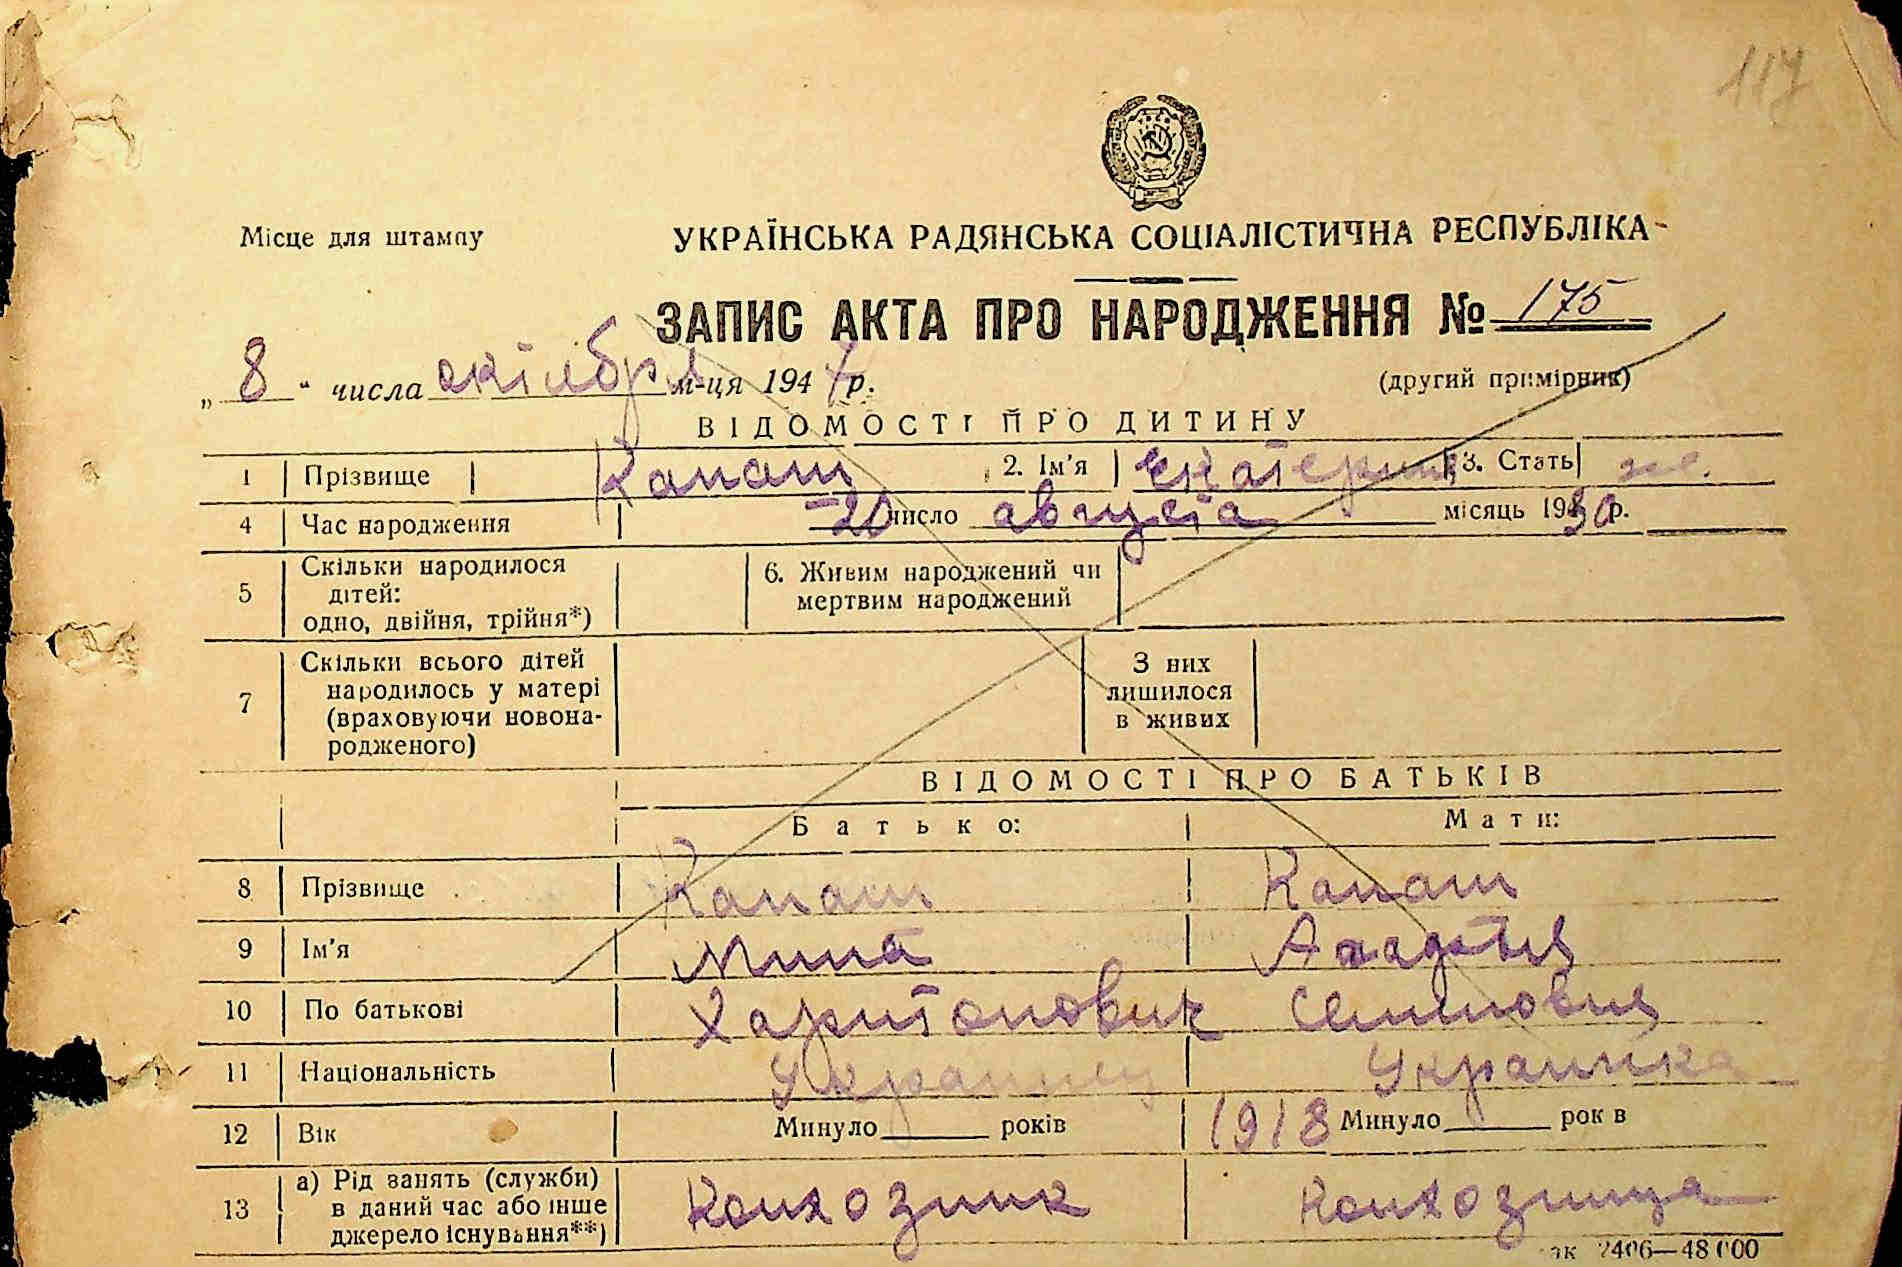 117
Місце для штампу
УКРАЇНСЬКА РАДЯНСЬКА СОЦІАЛІСТИЧНА РЕСПУБЛІКА
ЗАПИС АКТА ПРО НАРОДЖЕННЯ № 175
„ 8 “ числа октября м-ця 1947 р.
(другий примірник)
ВІДОМОСТІ ПРО ДИТИНУ
1 Прізвище Капаш 2. Ім'я Екатерина 3. Стать же.
4 Час народження 20 число августа місяць 1930 р.
5 Скільки народилося дітей: одно, двійня, трійня*) 6. Живим народжений чи мертвим народжений
7 Скільки всього дітей народилось у матері (враховуючи новонародженого) З них лишилося в живих
ВІДОМОСТІ ПРО БАТЬКІВ
Батько: Мати:
8 Прізвище Капаш Капаш
9 Ім'я Мина
10 По батькові Харитонович Семеновна
11 Національність Украинец Украинка
12 Вік Минуло ____ років 1918 Минуло ____ рок в
13 а) Рід занять (служби) в даний час або інше джерело існування**) Колхозник Колхозница
2406—48000